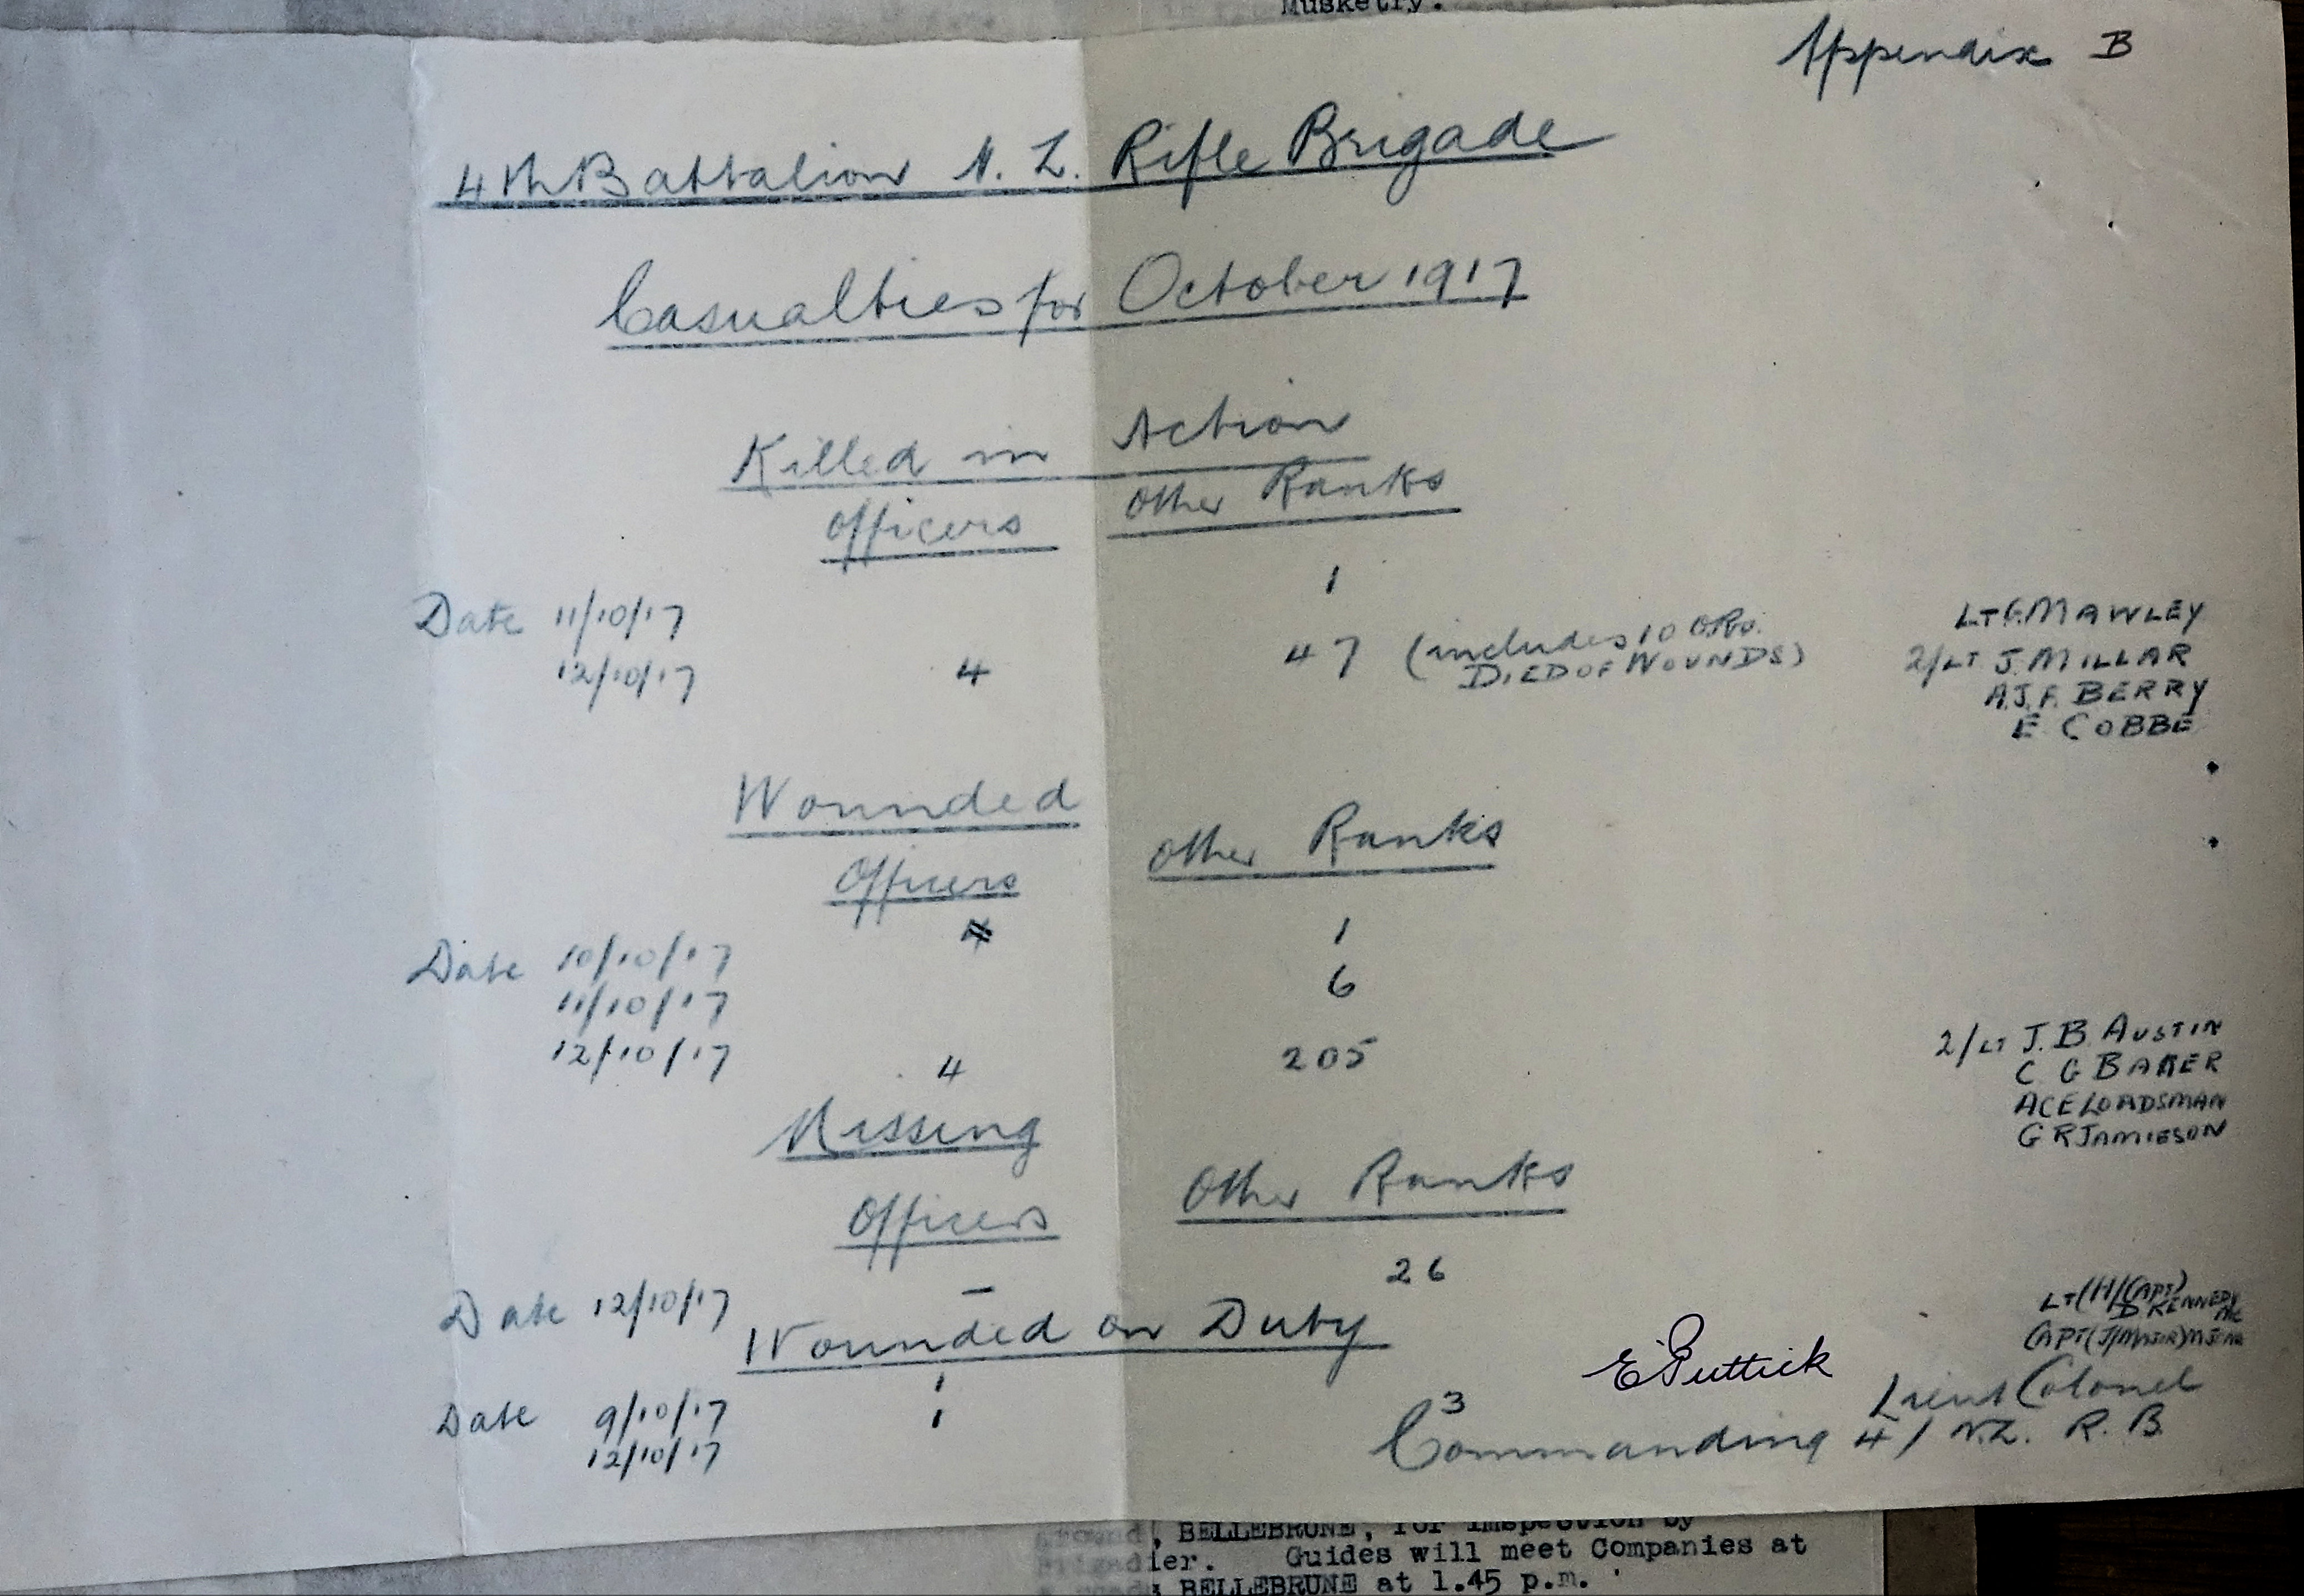 Musketry.
Appendix B
4th Battalion N. Z. Rifle Brigade
Casualties for October 1917
Killed in Action
Officers Other Ranks
Date 11/10/17 1
12/10/17 4 47 (includes 10 ORs. DIED OF WOUNDS)
LT F. MAWLEY
2/LT J. MILLAR
A.J.F. BERRY
E COBBE
Wounded
Officers Other Ranks
Date 10/10/17 1
11/10/17 6
12/10/17 4 205
2/LT J. B. AUSTIN
C G BAKER
A C E LOADSMAN
G R JAMIESON
Missing
Officers Other Ranks
Date 12/10/17 – 26
Wounded on Duty
Date 9/10/17 1
12/10/17 1 3
LT (H/CAPT)
D KENNEDY
CAPT
E Puttick
Lieut Colonel
Commanding 4/ N.Z. R. B.
, BELLEBRUNE, for inspection by
Brigadier. Guides will meet Companies at
BELLEBRUNE at 1.45 p.m.